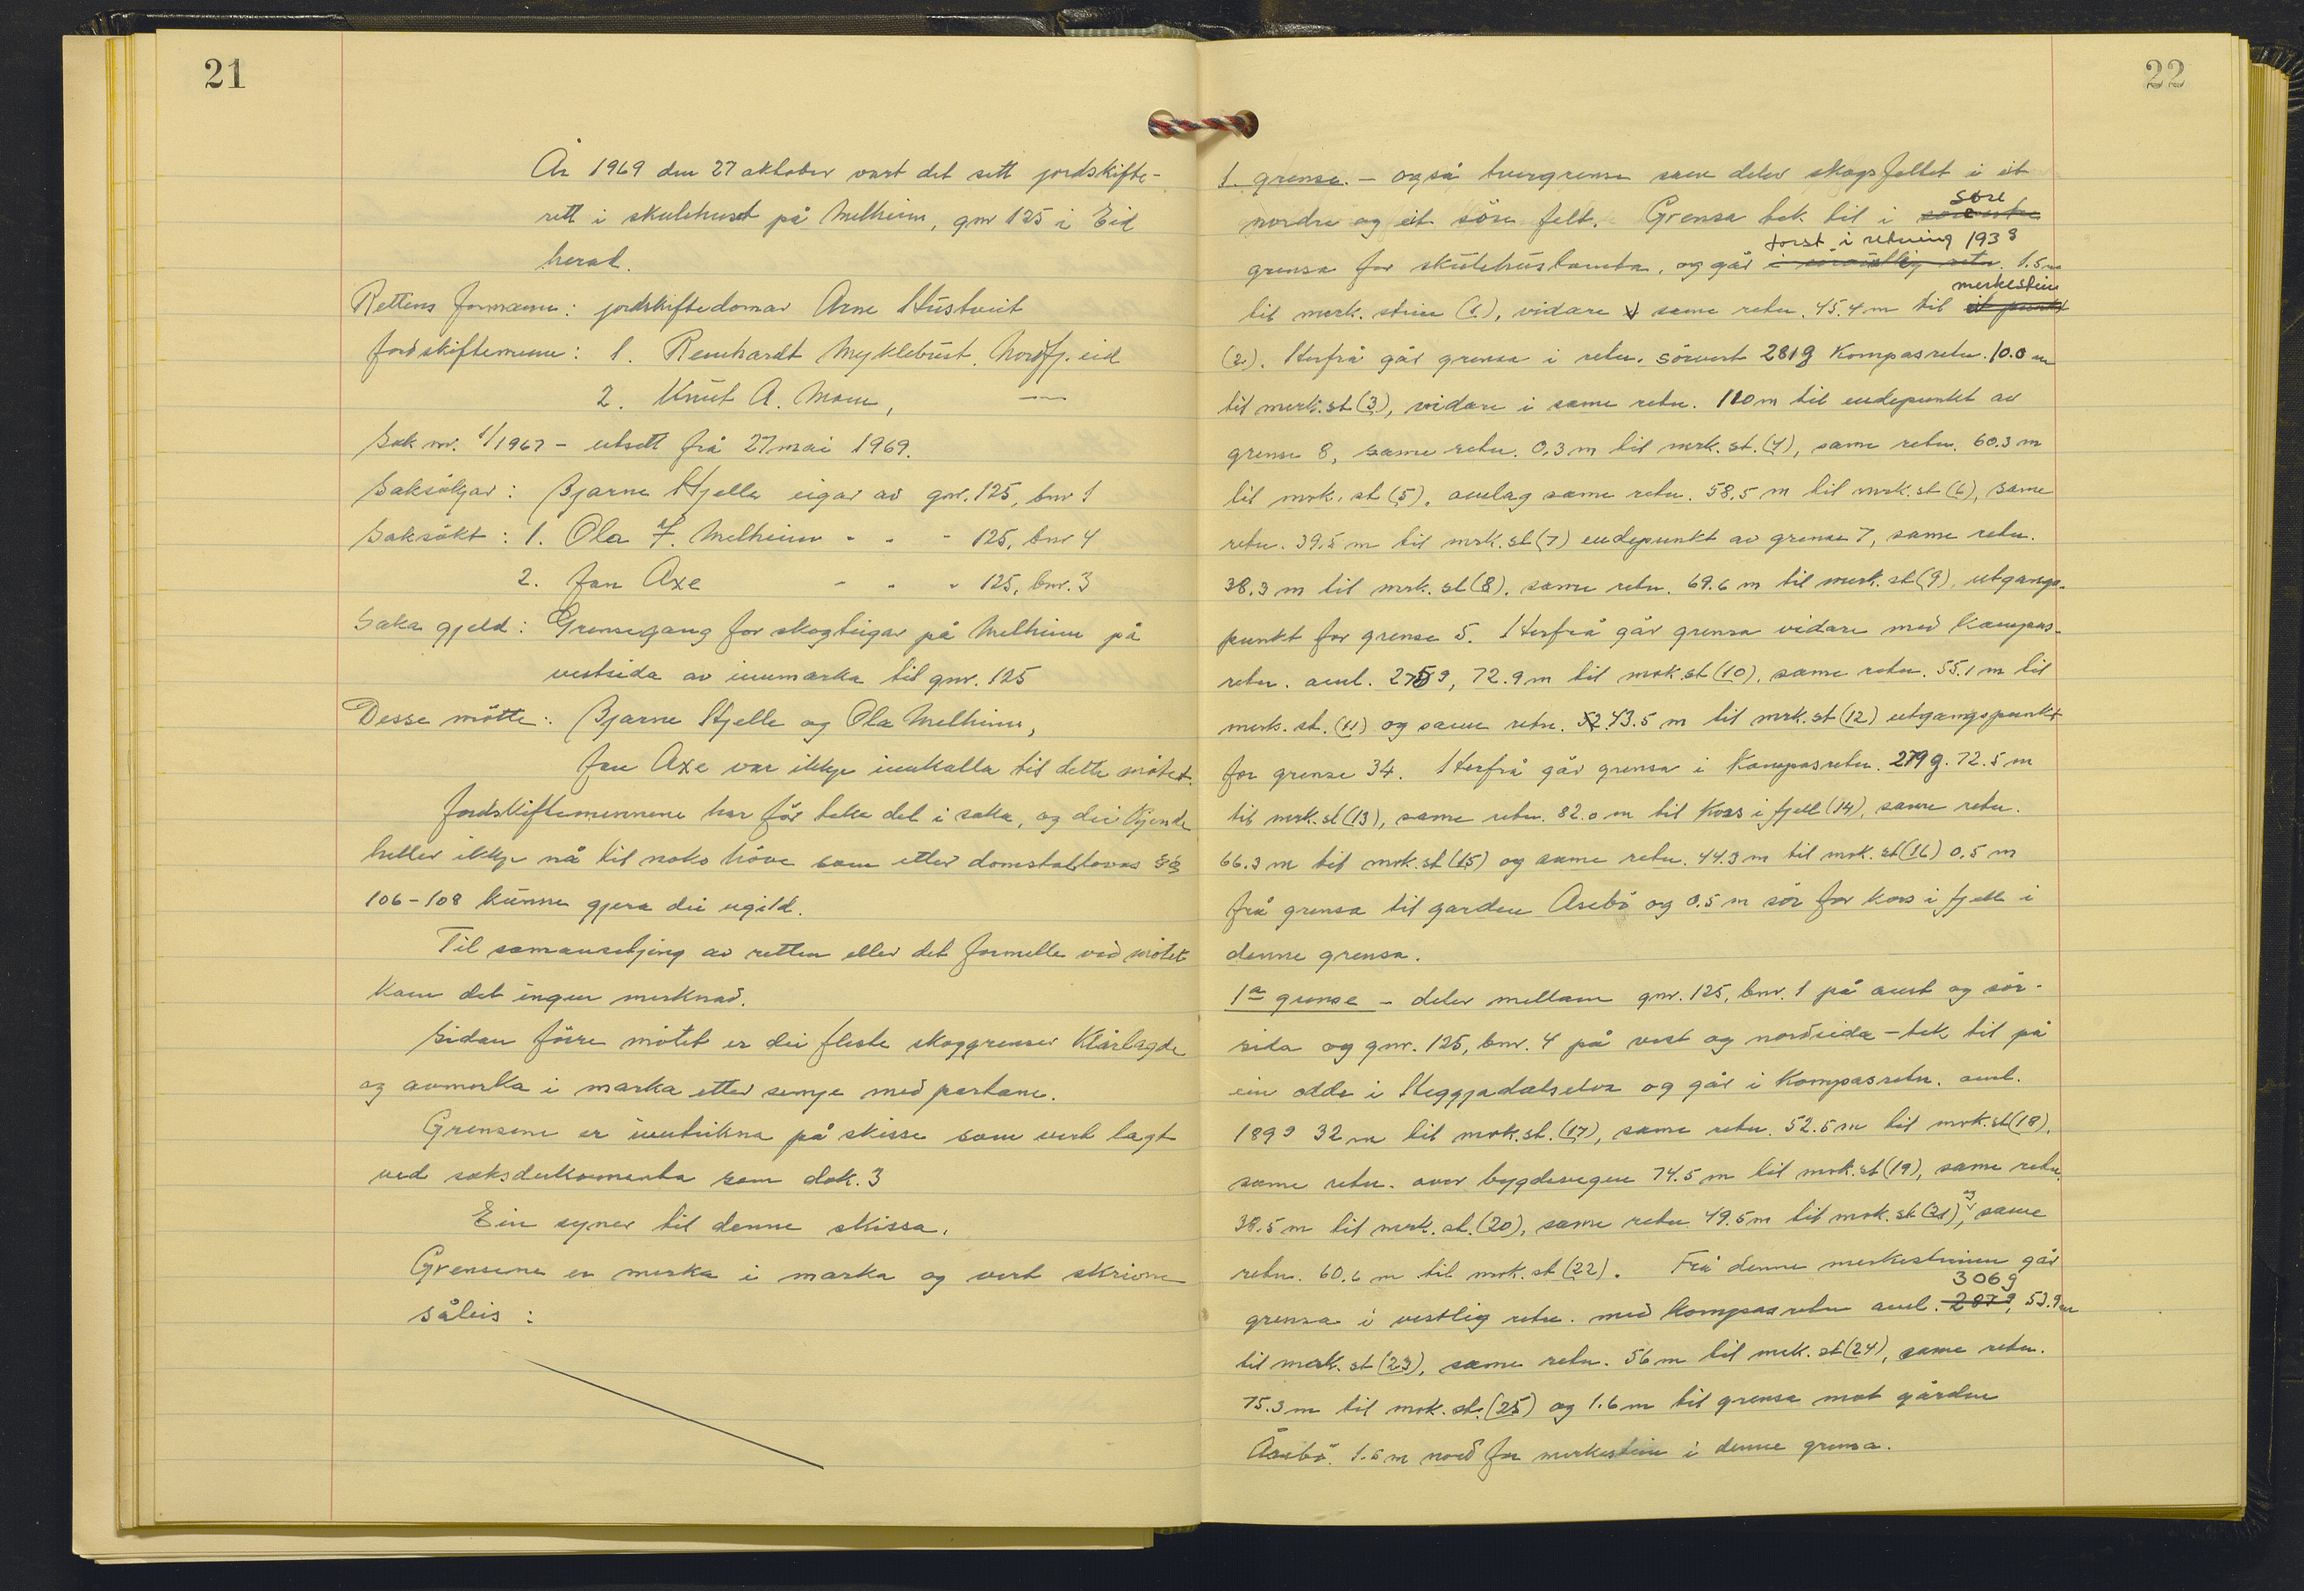 21
År 1969 den 27 oktober vart det sett jordskifte-
rett i skulehuset på Melheim, gnr 125 i Eid
herad.
Rettens formann: jordskiftedomar Arne Hustveit
Jordskiftemenn: 1. Reinhardt Myklebust, Nordfj. eid
2. Knut A. Moen, —"—
Sak nr. 1/1967 - utsett frå 27 mai 1969.
Saksökjar: Bjarne Hjelle eigar av gnr. 125, bnr 1
Saksökt: 1. Ola F. Melheim " " " 125, bnr 4
2. Jan Axe " " " 125, bnr. 3
Saka gjeld: Grensegang for skogteigar på Melheim på
vestsida av innmarka til gnr. 125
Desse mötte: Bjarne Hjelle og Ola Melheim,
Jan Axe var ikkje innkalla til dette mötet.
Jordskiftemennene har för teke del i saka, og dei kjende
heller ikkje nå til noko höve som etter domstollovas §§
106-108 kunne gjera dei ugild.
Til samansetjing av retten eller det formelle ved mötet
kom det ingen merknad.
Sidan förre mötet er dei fleste skoggrenser klårlagde
og avmerka i marka etter semje med partane.
Grensene er inntekna på skisse som vert lagt
ved saksdokumenta som dok. 3
Ein syner til denne skissa.
Grensene er merka i marka og vert skrivne
såleis:
22
1. grense. - også tvergrense som deler skogsfeltet i eit
söre
nordre og eit söre felt. Grensa tek til i
först i retning 193 g
grensa for skulehustomta, og går i sörvestleg retn. 1.5 m
merkestein
til merk. stein (1), vidare i same retn. 45.4 m til eit punkt
(2). Herfrå går grensa i retn. sörvest 281 g kompasretn. 10.0 m
til merk.st (3), vidare i same retn. 110 m til endepunktet av
grense 8, same retn. 0,3 m til merk. st. (4), same retn. 60.3 m
til mrk. st (5), omlag same retn. 58.5 m til mrk. st (6), same
retn. 39.5 m til mrk. st (7) endepunkt av grense 7, same retn.
38.3 m til mrk. st (8), same retn. 69.6 m til merk. st (9), utgangs-
punkt for grense 5. Herfrå går grensa vidare med kompas-
retn. oml. 275 g, 72.9 m til mrk. st (10), same retn. 55.1 m til
merk. st. (11) og same retn. 43.5 m til mrk. st (12) utgangspunkt
for grense 34. Herfrå går grensa i kompasretn. 279 g. 72.5 m
til mrk. st (13), same retn. 82.0 m til kors i fjell (14), same retn.
66.3 m til mrk. st (15) og same retn. 44.3 m til mrk. st (16) 0.5 m
frå grensa til garden Åsebö og 0.5 m sör for kors i fjell i
denne grensa.
1a grense - deler mellom gnr. 125, bnr. 1 på aust og sör-
sida og gnr. 125, bnr. 4 på vest og nordsida - tek til på
ein odde i Heggjadalselva og går i kompasretn. oml.
189 g 32 m til mrk. st. (17), same retn. 52.5 m til mrk. st (18),
same retn. over bygdevegen 74.5 m til mrk. st (19), same retn.
38.5 m til mrk. st. (20), same retn 49.5 m til mrk. st (21), og same
retn. 60.6 m til mrk. st (22). Frå denne merkesteinen går
306 g
grensa i vestlig retn. med kompasretn oml. 287 g, 53.9 m
til merk. st (23), same retn. 56 m til mrk. st (24), same retn.
75.3 m til mrk. st. (25) og 1.6 m til grensa mot gården
Åsebö. 1.6 m nord for merkestein i denne grensa.